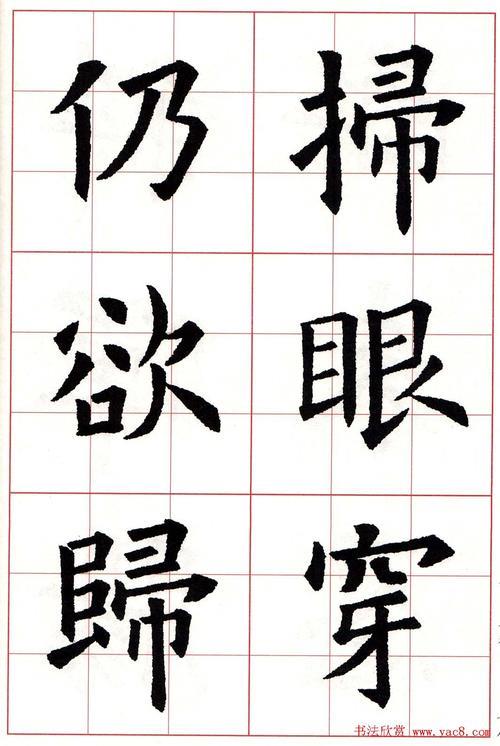 掃眼穿
仍欲歸
书法欣赏 www.yac8.com